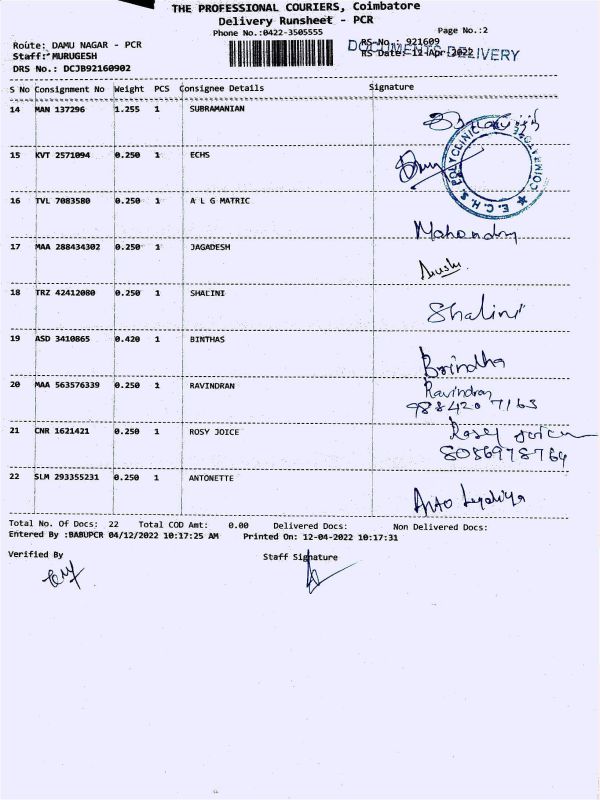 THE PROFESSIONAL COURIERS, Coimbatore
Delivery Runsheet - PCR
Phone No.:0422-3505555
Page No.:2
Route: DAMU NAGAR - PCR
RS-No.: 921609
Staff: MURUGESH
RS Date: 12-Apr-2022
DOCUMENTS DELIVERY
DRS No.: DCJB92160902
S No Consignment No Weight PCS Consignee Details Signature
14 MAN 137296 1.255 1 SUBRAMANIAN
15 KVT 2571094 0.250 1 ECHS
E.C.H.S. POLYCLINIC COIMBATORE
16 TVL 7083580 0.250 1 A L G MATRIC
Mahendra
17 MAA 288434302 0.250 1 JAGADESH
18 TRZ 42412080 0.250 1 SHALINI
Shalini
19 ASD 3410865 0.420 1 BINTHAS
Brindha
20 MAA 563576339 0.250 1 RAVINDRAN
Ravindran
988420 7163
21 CNR 1621421 0.250 1 ROSY JOICE
Rosey Joice
8056978764
22 SLM 293355231 0.250 1 ANTONETTE
Anto
Total No. Of Docs: 22 Total COD Amt: 0.00 Delivered Docs: Non Delivered Docs:
Entered By :BABUPCR 04/12/2022 10:17:25 AM Printed On: 12-04-2022 10:17:31
Verified By Staff Signature